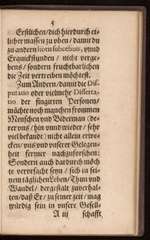 4
Erstlichen/ dich hierdurch ei-
licher massen zu oben / damit du
zu andern horis subcesivis, vnnd
Erquickstunden / nicht verge-
bens / sondern fruchtbarlichen
die Zeit vertreiben möchtest.
Zum Andern/ damit die Dis-
putatio oder vielmehr Disserta-
tio der jüngsten Personen/
mächte noch manchen frommen
Menschen vnd Biderman (de-
rer vns / hin vnnd wieder / sehr
viel bekandt) nicht allein erwe-
cken/ vns vnd vnserer Belegen-
heit ferner nachzuforschen:
Sondern auch dardurch möch-
te verorsacht seyn / sich in sei-
nem täglichen Leben/ Thun vnd
Wandel / dergestalt zuverhal-
ten/ daß Er/ zu seiner zeit/ mag
würdig sein in vnsere Gesell-
A iij schafft